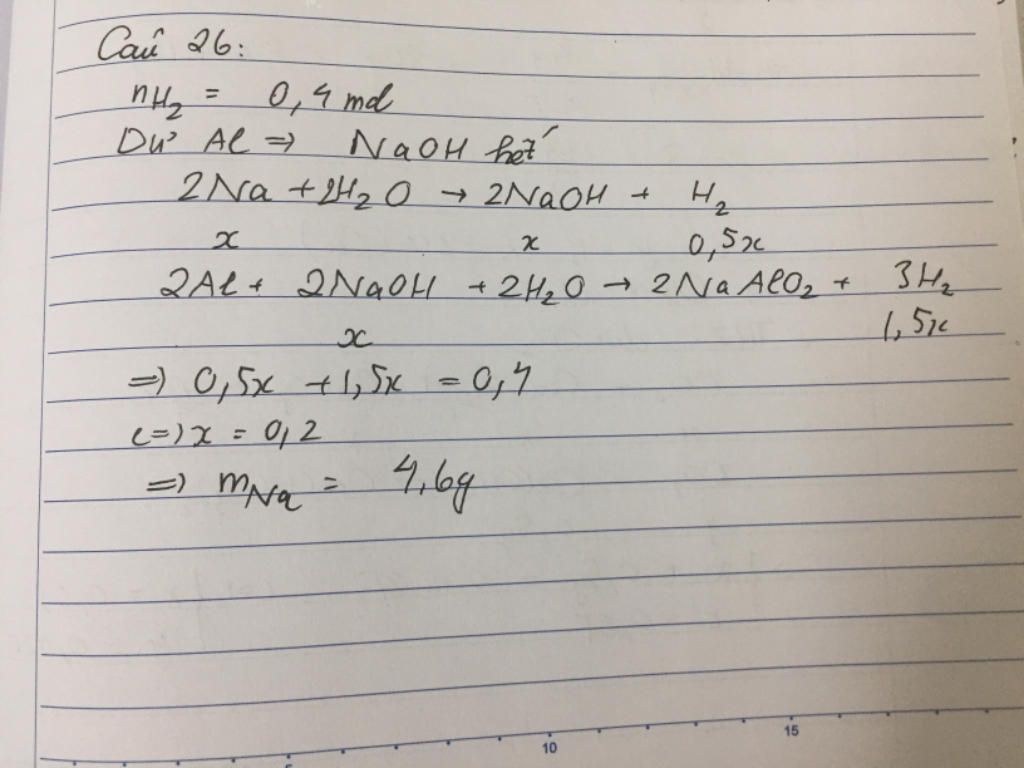 Câu 26:
nH₂ = 0,4 mol
Dư Al => NaOH hết
2Na + 2H₂O → 2NaOH + H₂
x x 0,5x
2Al + 2NaOH + 2H₂O → 2NaAlO₂ + 3H₂
x 1,5x
=> 0,5x + 1,5x = 0,4
<=> x = 0,2
=> mNa = 4,6g
5 10 15